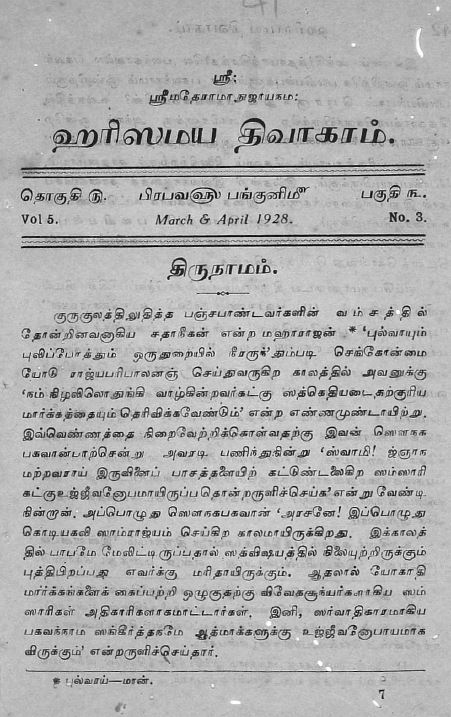 ஸ்ரீ:
ஸ்ரீமதேராமாநுஜாயநம:
ஹரிஸமய திவாகரம்.
தொகுதி ௫. பிரபவ௵ பங்குனி௴ பகுதி ௩.
Vol 5. March & April 1928. No. 3.
திருநாமம்.
குருகுலத்திலுதித்த பஞ்சபாண்டவர்களின் வம்சத்தில்
தோன்றினவனாகிய சதாநீகன் என்ற மஹாராஜன் * ‘புல்வாயும்
புலிப்போத்தும் ஒருதுறையில் நீரருந்’தும்படி செங்கோன்மை
யோடு ராஜ்யபரிபாலனஞ் செய்துவருகிற காலத்தில் அவனுக்கு
‘நம் நிழலிலொதுங்கி வாழ்கின்றவர்கட்கு ஸத்கதியடைதற்குரிய
மார்க்கத்தையும் தெரிவிக்கவேண்டும்’ என்ற எண்ணமுண்டாயிற்று.
இவ்வெண்ணத்தை நிறைவேற்றிக்கொள்வதற்கு இவன் ஸௌநக
பகவான்பாற்சென்று அவரடி பணிந்துநின்று ‘ஸ்வாமி! ஜ்ஞாந
மற்றவராய் இருவினைப் பாசத்தளையிற் கட்டுண்டலைகிற ஸம்ஸாரி
கட்குஉஜ்ஜீவனோபமாயிருப்பதொன்றருளிச்செய்க’ என்று வேண்டி
நின்றான். அப்பொழுது ஸௌநகபகவான் ‘அரசனே! இப்பொழுது
கொடியகலி ஸாம்ராஜ்யம் செய்கிற காலமாயிருக்கிறது. இக்காலத்
தில் பாபமே மேலிட்டிருப்பதால் ஸத்விஷயத்தில் நிலையுற்றிருக்கும்
புத்திபிறப்பது எவர்க்கு மரிதாயிருக்கும். ஆதலால் யோகாதி
மார்க்கங்களைக் கைப்பற்றி ஒழுகுதற்கு விவேகசூந்யர்களாகிய ஸம்
ஸாரிகள் அதிகாரிகளாகமாட்டார்கள். இனி, ஸர்வாதிகாரமாகிய
பகவந்நாம ஸங்கீர்த்தநமே ஆத்மாக்களுக்கு உஜ்ஜீவனோபாயமாக
விருக்கும்’ என்றருளிச்செய்தார்.
* புல்வாய்—மான்.
7